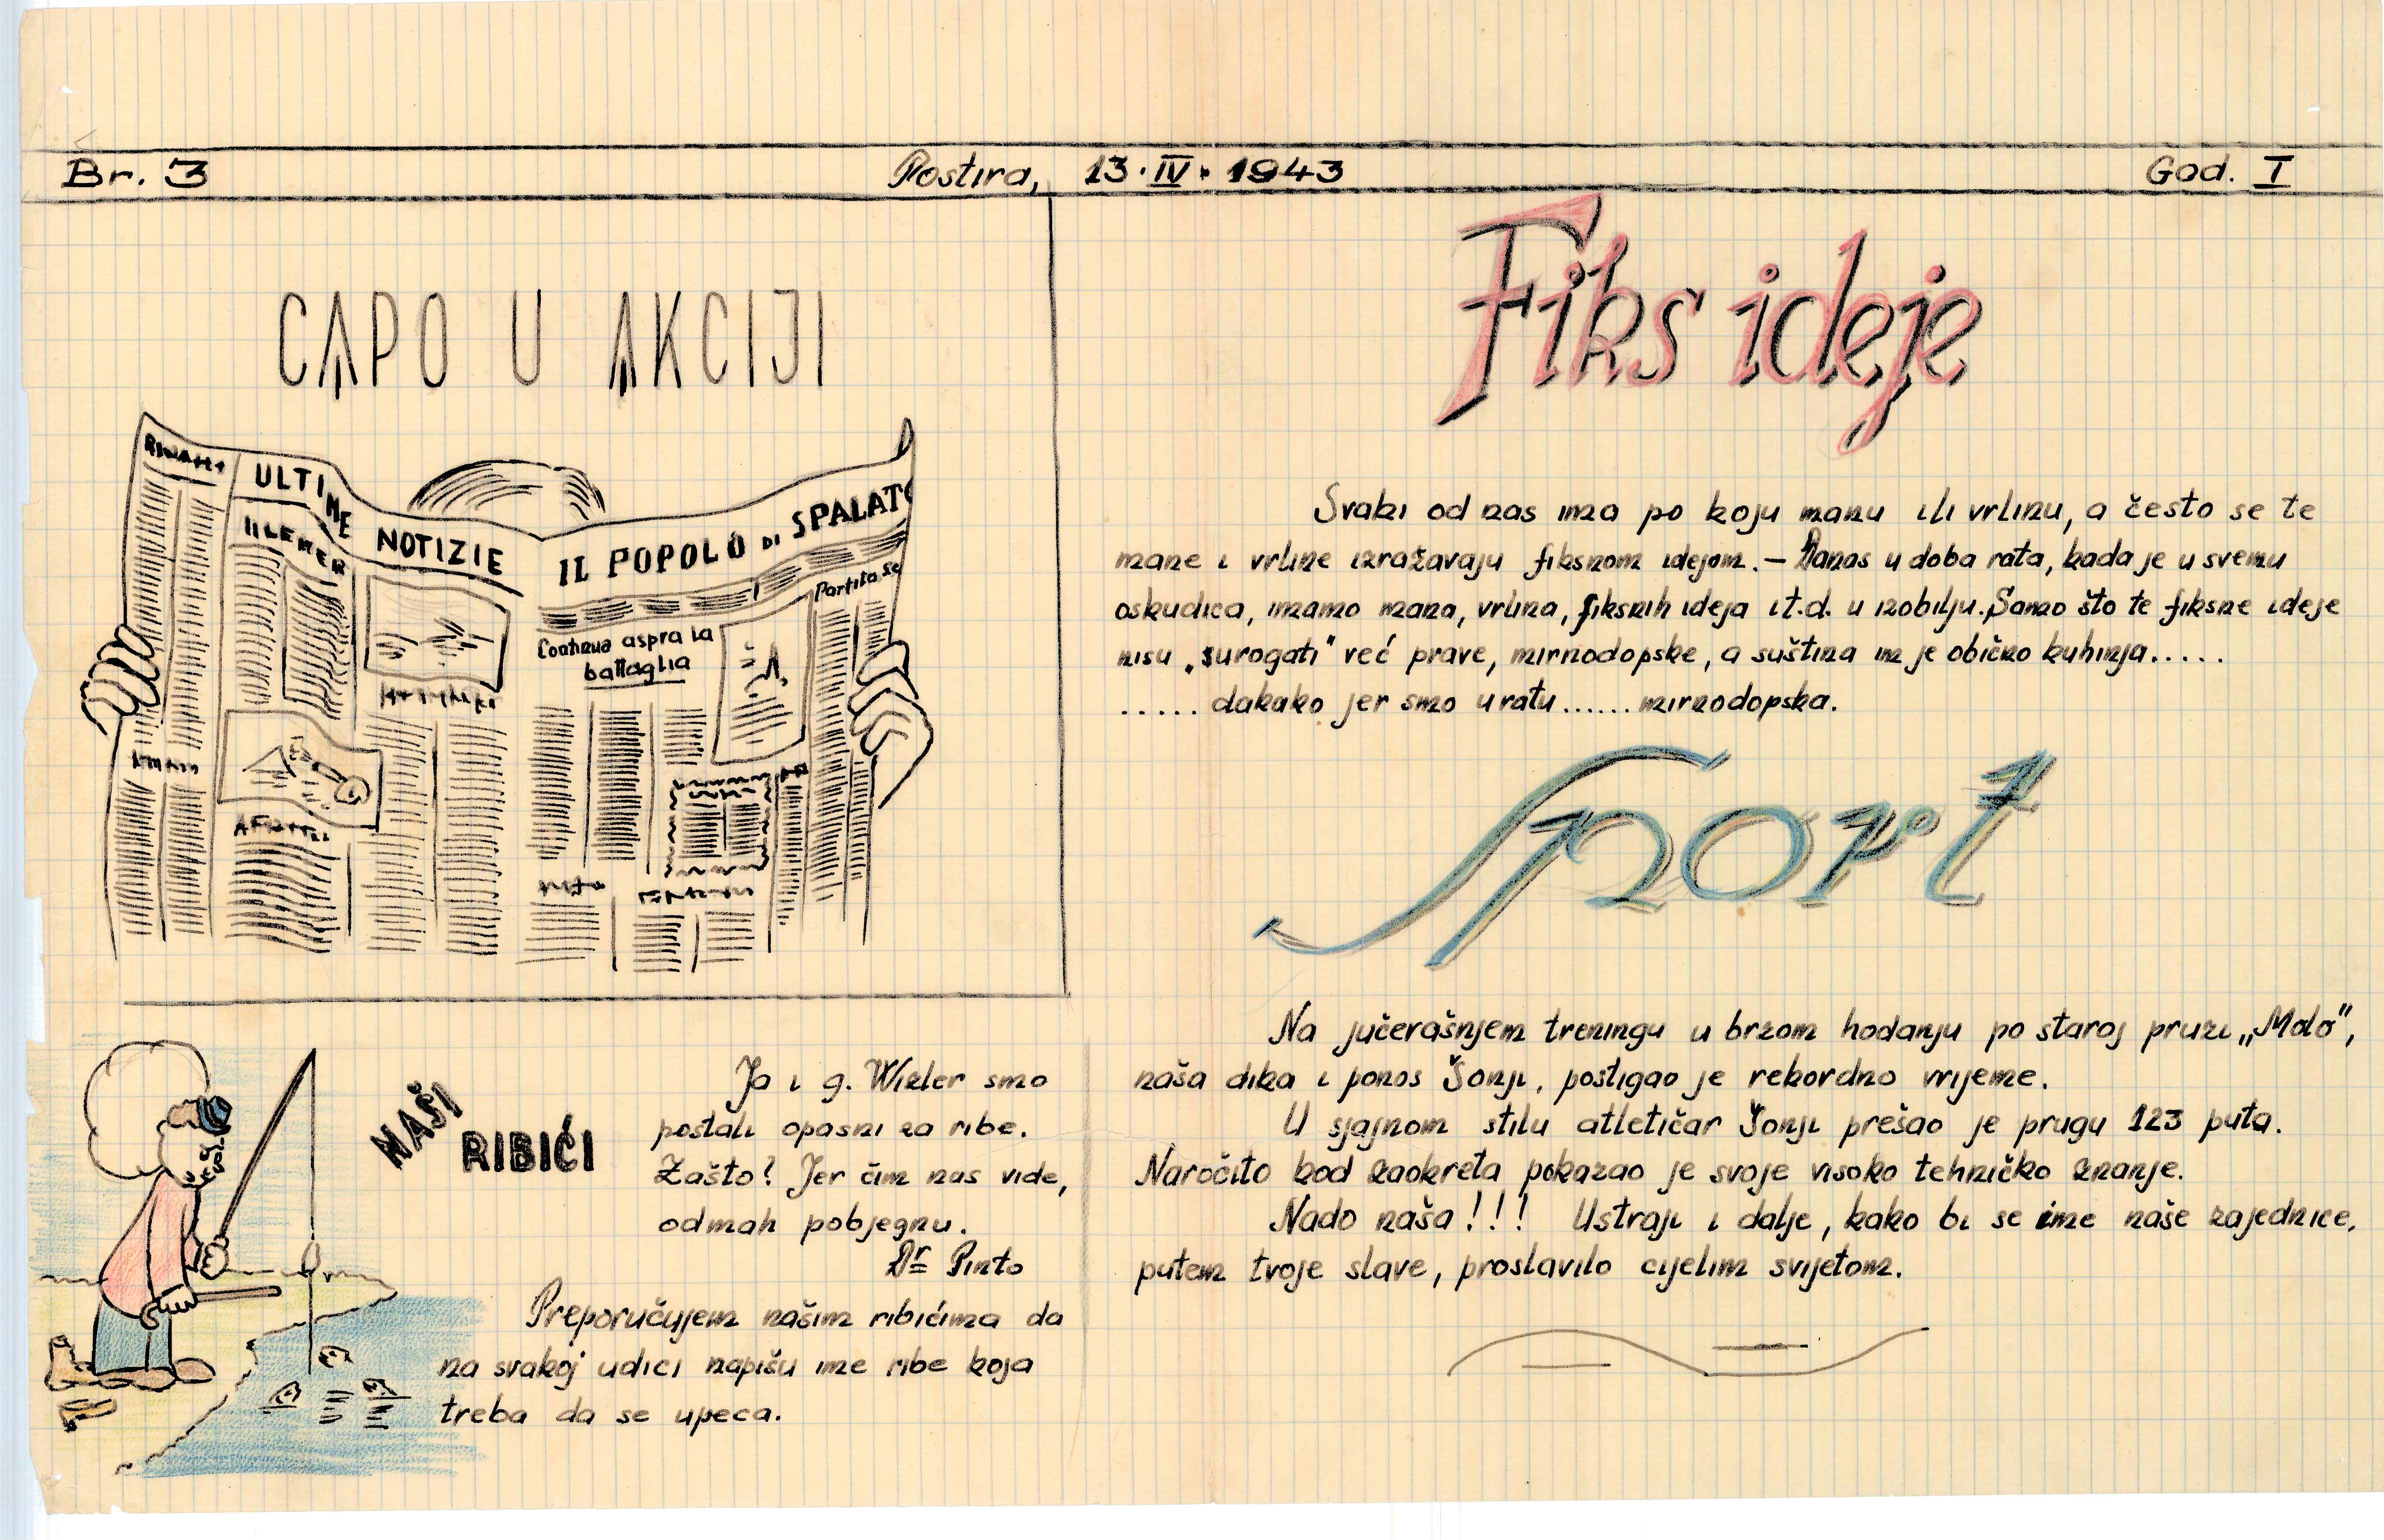 Br. 3
Postira, 13·IV·1943
God. I
CAPO U AKCIJI
ULTIME NOTIZIE
IL POPOLO DI SPALATO
Partita se
Continua aspra la
battaglia
NAŠI
RIBIĆI
Ja i g. Winler smo
postali opasni za ribe.
Zašto? Jer čim nas vide,
odmah pobjegnu.
Dr Pinto
Preporučujem našim ribićima da
na svakoj udici napišu ime ribe koja
treba da se upeca.
Fiks ideje
Svaki od nas ima po koju manu ili vrlinu, a često se te
mane i vrline izražavaju fiksnom idejom. — Danas u doba rata, kada je u svemu
oskudica, imamo mana, vrlina, fiksnih ideja i t.d. u izobilju. Samo što te fiksne ideje
nisu „surogati" već prave, mirnodopske, a suština im je obično kuhinja.....
..... dakako jer smo u ratu...... mirnodopska.
Sport
Na jučerašnjem treningu u brzom hodanju po staroj pruzi „Molo",
naša dika i ponos Šonji, postigao je rekordno vrijeme.
U sjajnom stilu atletičar Šonji prešao je prugu 123 puta.
Naročito kod zaokreta pokazao je svoje visoko tehničko znanje.
Nado naša!!! Ustraji i dalje, kako bi se ime naše zajednice,
putem tvoje slave, proslavilo cijelim svijetom.